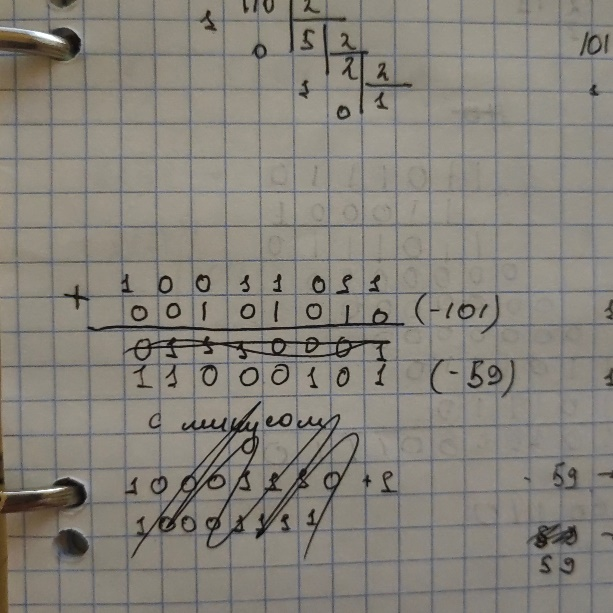 110 2
1 5 2
0 2 2
1 1
0
101
1
+ 1 0 0 1 1 0 1 1
0 0 1 0 1 0 1 0 (-101)
0 1 1 1 0 0 0 1
1 1 0 0 0 1 0 1 (-59)
с минусом
0
1 0 0 0 1 1 1 0 +1
1 0 0 0 1 1 1 1
- 59
59